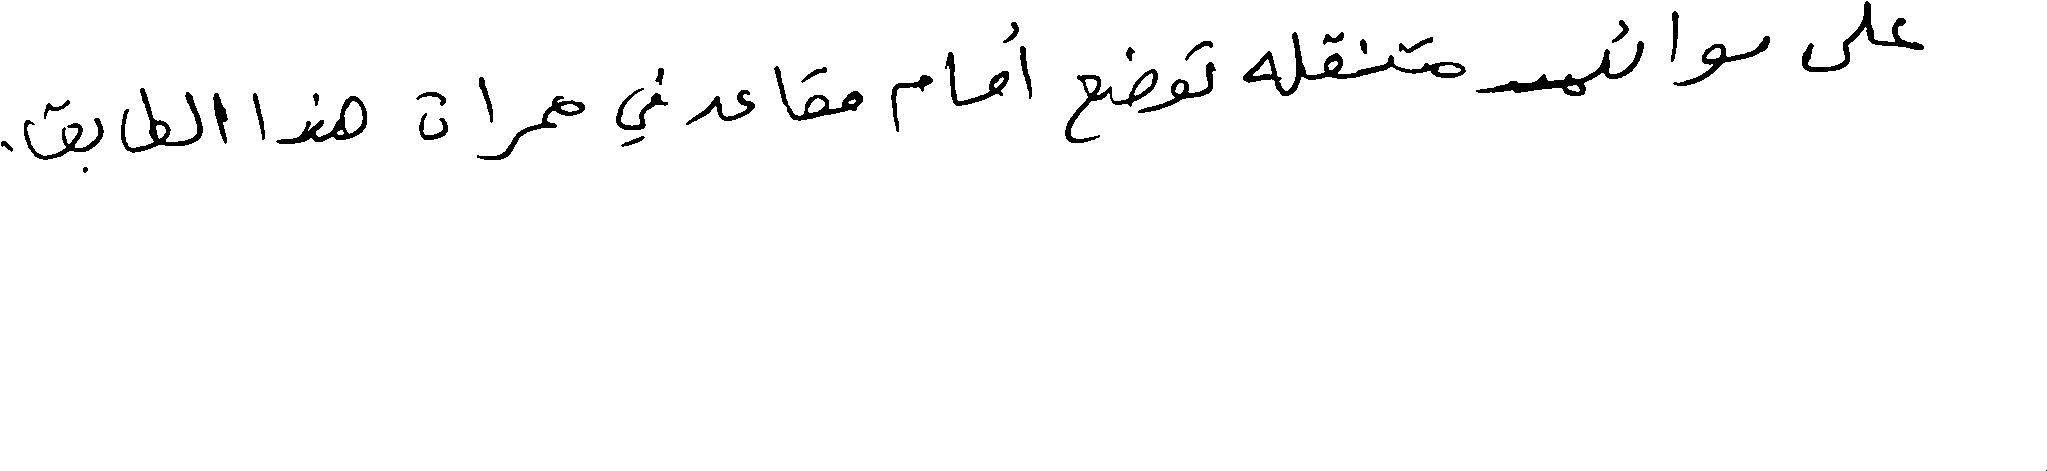 على موائد متنقله توضع أمام مقاعد في ممراة هذا الطابق.